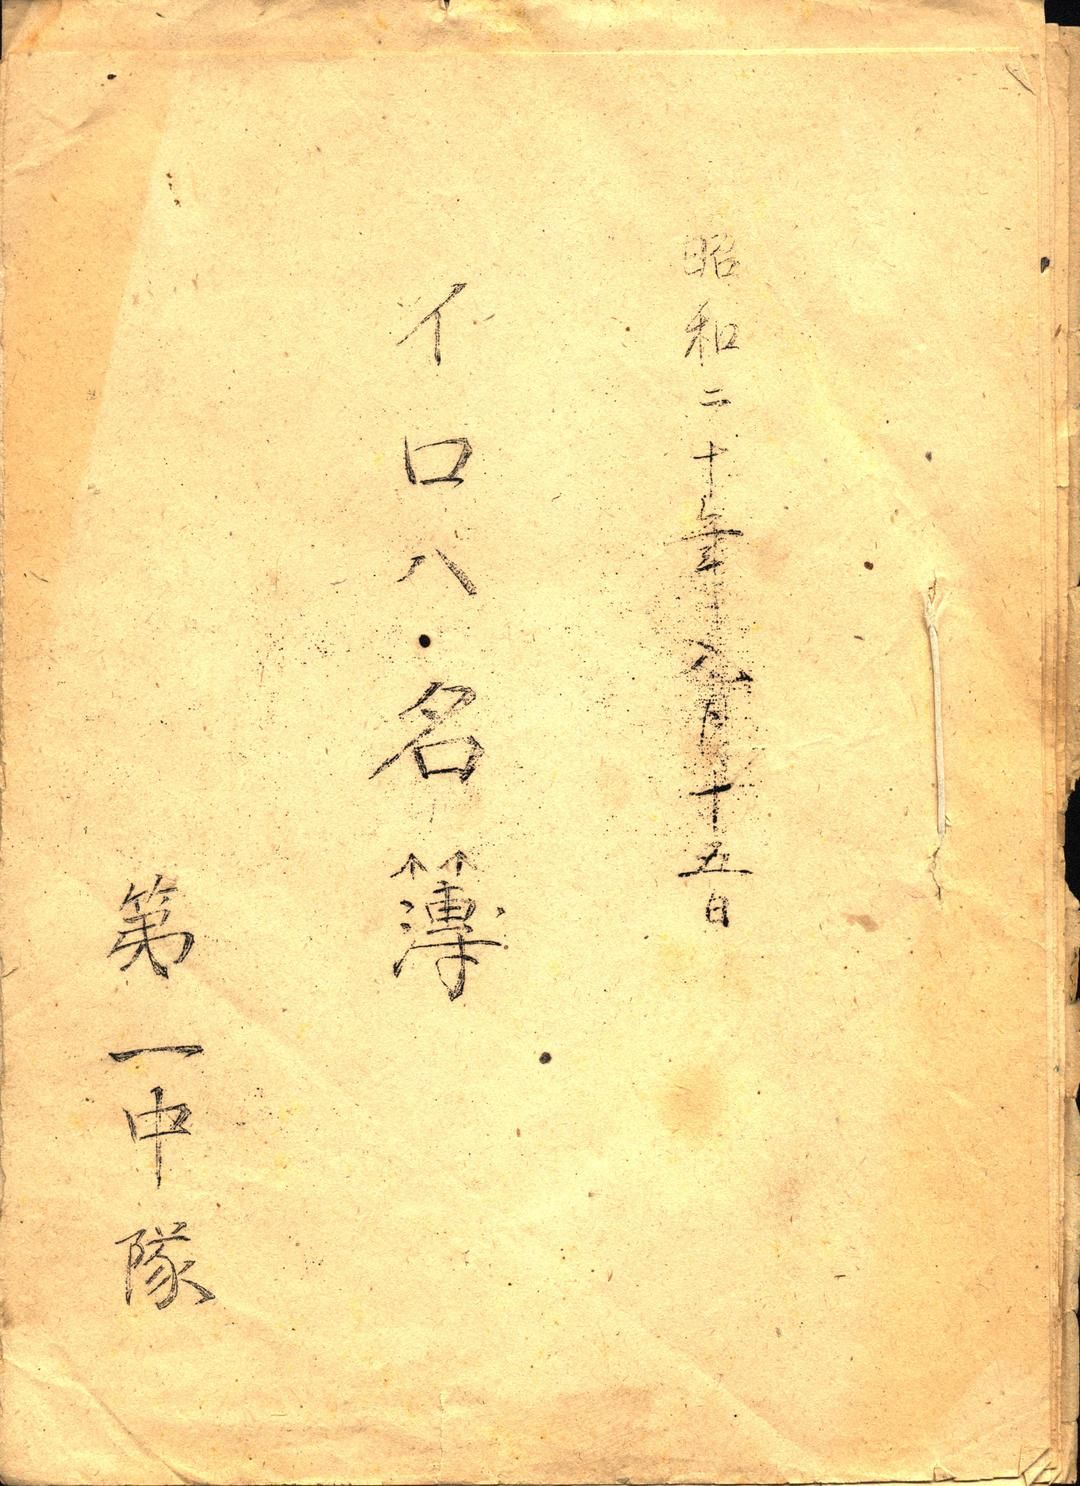 昭和二十年八月十五日
イロハ・名簿
第一中隊